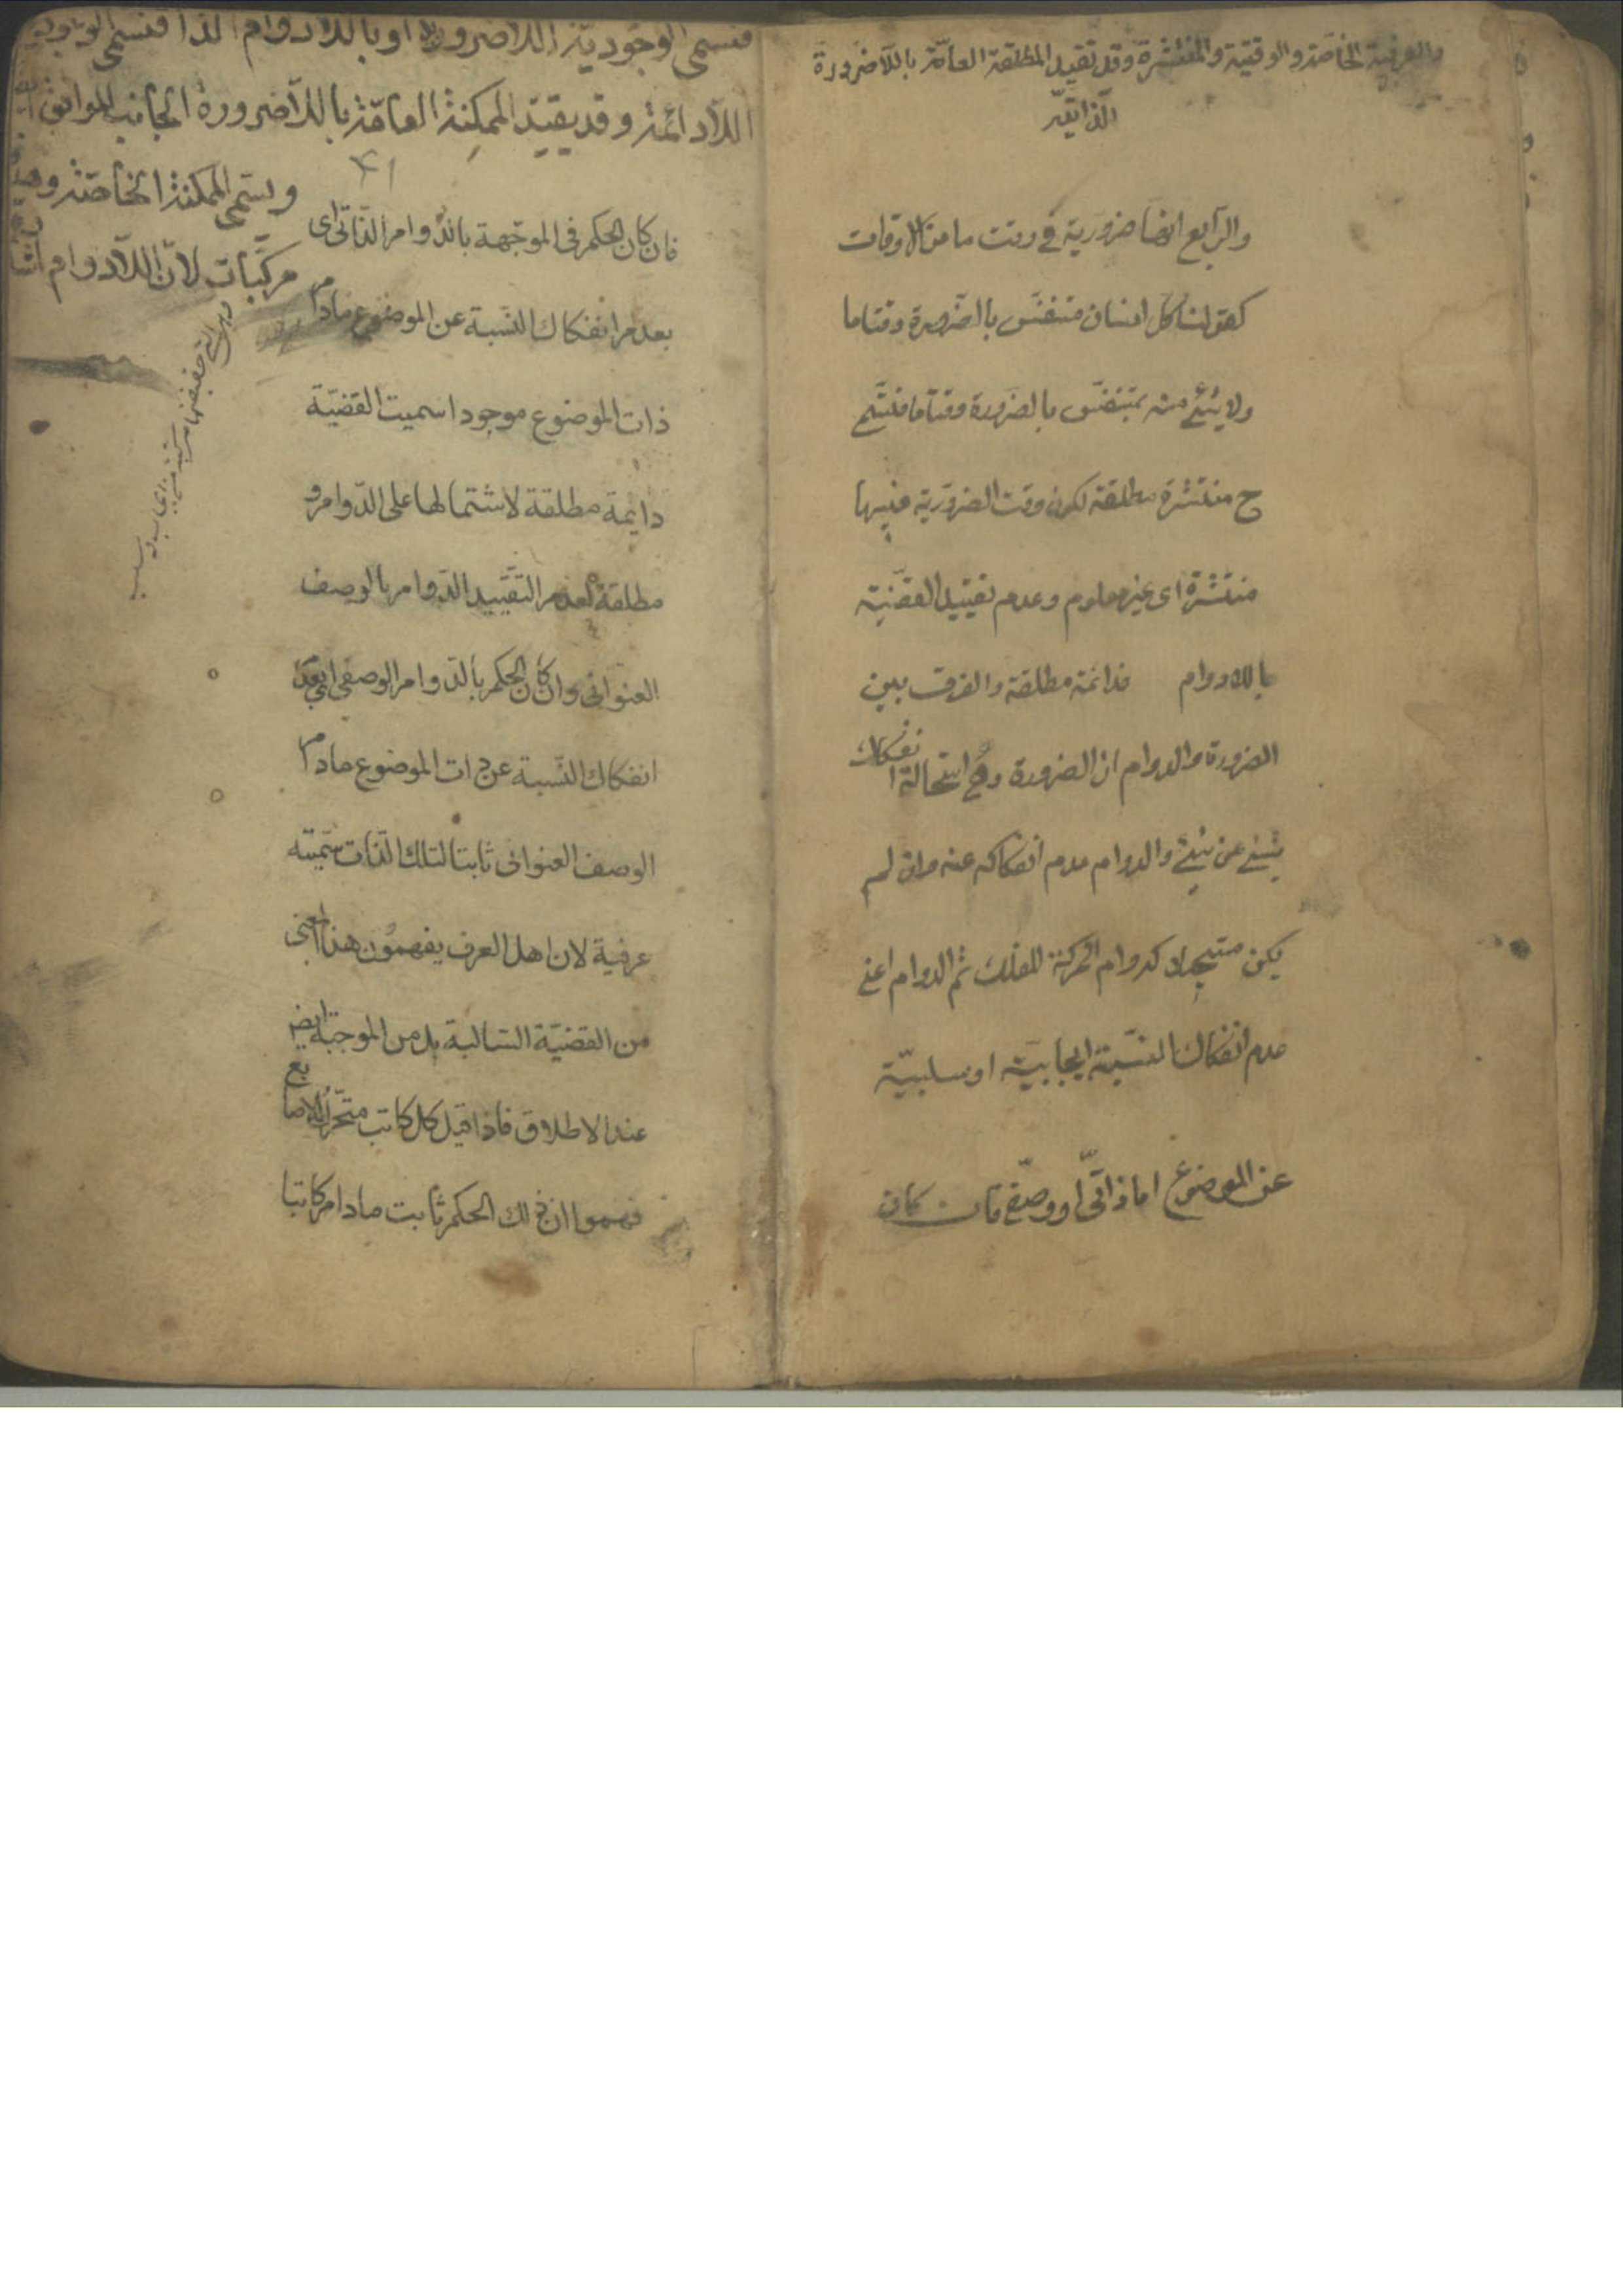 والعرفية الخاصة والوقتية والمنتشرة وقد تقيد المطلقة العامة باللاضرورة
الذاتية
والرابع ايضا ضرورية في وقت ما من الاوقات
كقولنا كل انسان متنفس بالضرورة وقتا ما
ولا شئ منه بمتنفس بالضرورة وقتا ما فتسمى
ح منتشرة مطلقة لكون وقت الضرورية فيها
منتشرة اى غير معلوم وعدم تقييد القضية
باللادوام فدائمة مطلقة والفرق بين
الضرورة والدوام ان الضرورة هى استحالة انفكاك
شئ عن شئ والدوام عدم انفكاكه عنه وان لم
يكن مستحيلا كدوام الحركة للفلك ثم الدوام اعنى
عدم انفكاك النسبة ايجابية او سلبية
عن الموضوع اما ذاتى او وصفى فان كان
فتسمى الوجودية اللاضرورية او باللادوام الذا فتسمى الوجودية
اللادائمة وقد يقيد الممكنة العامة باللاضرورة الجانب الموافق
ويسمى الممكنة الخاصة وهذه
مركبات لان اللادوام
٤١
فان كان الحكم فى الموجهة بالدوام الذاتى اى
بعدم انفكاك النسبة عن الموضوع مادام
ذات الموضوع موجودا سميت القضية
دائمة مطلقة لاشتمالها على الدوام و
مطلقة لعدم التقييد الدوام بالوصف
العنوانى وان كان الحكم بالدوام الوصفى اى بعدم
انفكاك النسبة عن ذات الموضوع مادام
الوصف العنوانى ثابتا لتلك الذات سميت
عرفية لان اهل العرف يفهمون هذا المعنى
من القضية السالبة بل من الموجبة ايضا
عند الاطلاق فاذا قيل كل كاتب متحرك الاصابع
فهموا ان ذلك الحكم ثابت مادام كاتبا